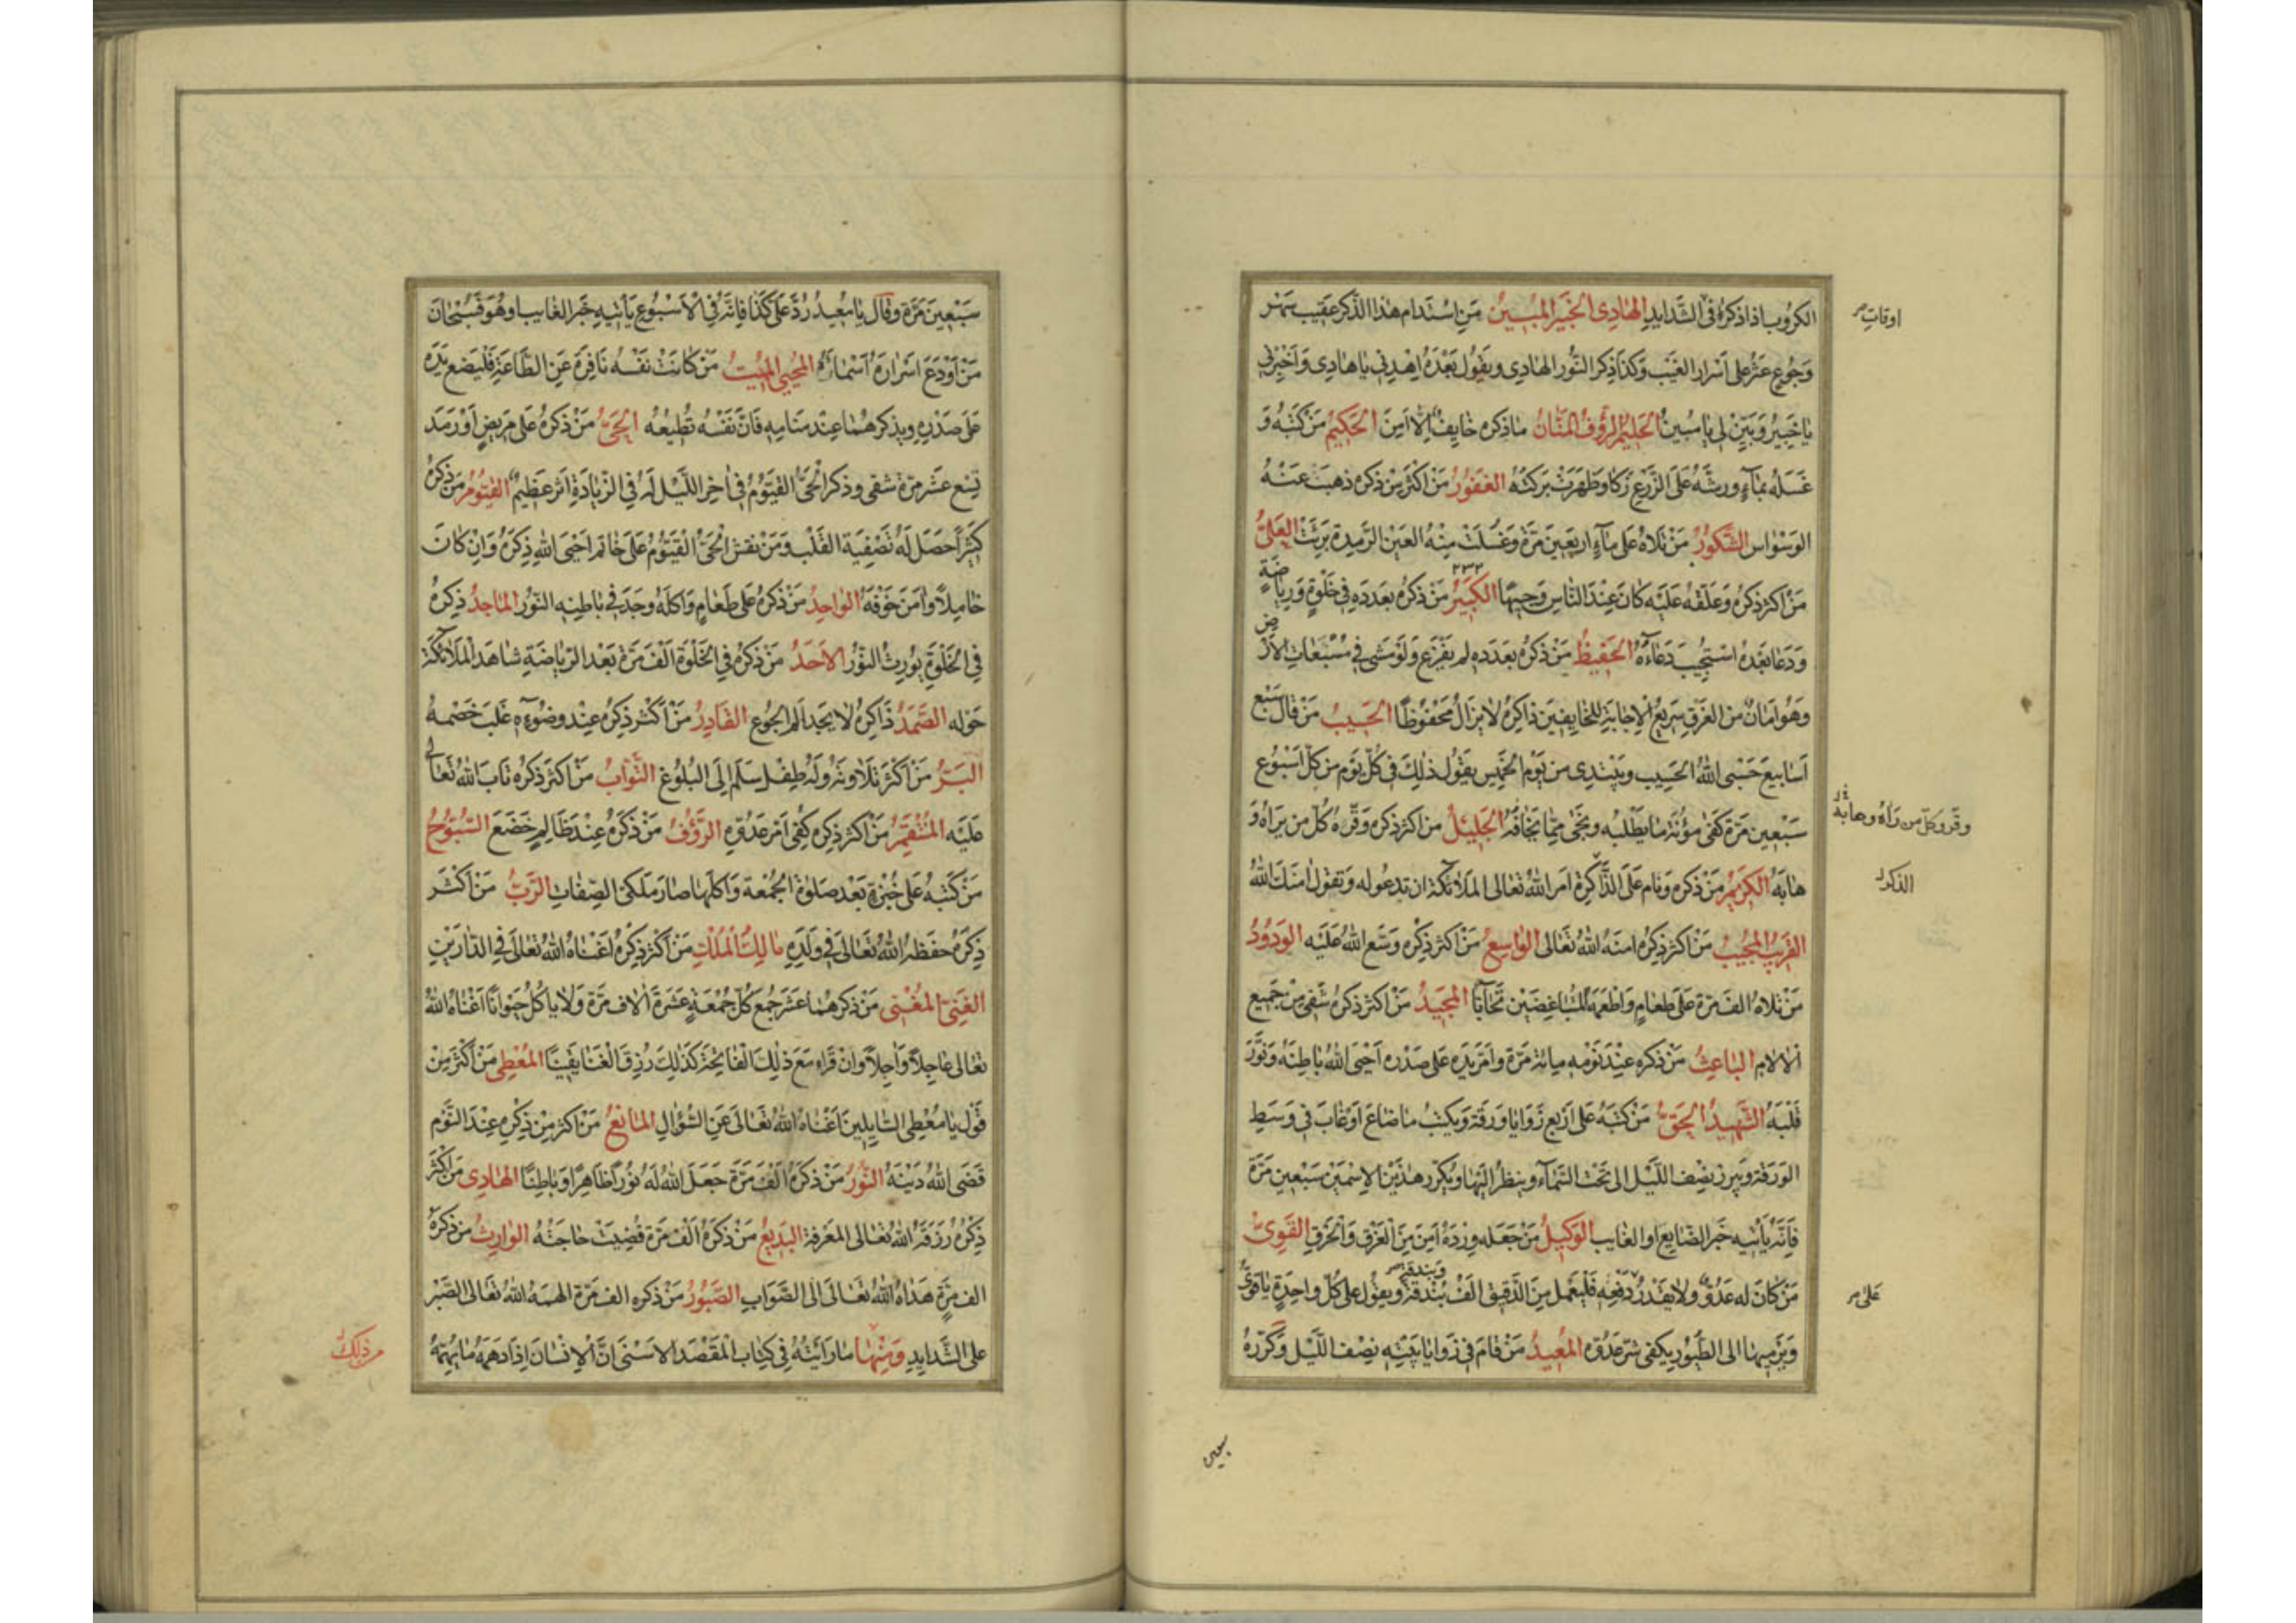 الكروب اذا ذكره في الشَّدايدِ الهادى الخبير المبين من استدام هذا الذكر عقيب سَهَرٍ
وَجُوعٍ عثر على اسرار الغيب وكذا ذكر النّور الهادى ويقول بعده اهدنى يا هادى واخبرنى
يا خبير وبَيّن لى يا مبين الحليم الرؤف المنّان ما ذكره خايف الّا امن الحكيم من كتبه وَ
غسله بماءٍ ورشّه على الزرع زكا وظهرت بركته الغفور من اكثر من ذكره ذهب عنه
الوسواس الشكور من تلاه على ماءٍ اربعين مرّة وغسلت منه العين الرّمدة برئت العلىّ
من اكثر ذكره وعلّقه عليه كان عند الناس وجيهًا الكبير ٢٣٢ من ذكره بعدده في خلوةٍ ورياضةٍ
ودعا بعده استجيب دعاءه الحفيظ من ذكره بعدده لم يفزع ولو مشى في مسبعات الارض
وهو امان من الغرق سريع الاجابة للخايفين ذاكره لا يزال محفوظًا الحسيب من قال سبع
اسابيع حسبى الله الحسيب ويبتدى من يوم الخميس يقول ذلك في كلّ يوم من كلّ اسبوع
سبعين مرّة كفى مؤنة ما يطلبه ونجى ممّا يخافه الجليل من اكثر ذكره وقّره كلّ من يراه وَ
هابه الكريم من ذكره ونام على الذّاكرة امر الله تعالى الملائكة ان تدعو له وتقول امنك الله
القريب المجيب من اكثر ذكره امنه الله تعالى الواسع من اكثر ذكره وسّع الله عليه الودود
من تلاه الف مرّة على طعامٍ واطعمه المتباغضين تحابّا المجيد من اكثر ذكره شفى من جميع
الالام الباعث من ذكره عند نومه ميائة مرّة وامرّ يده على صدره احيى الله باطنه ونوّر
قلبه الشهيد الحقّ من كتبه على اربع زوايا ورقة ويكتب ما ضاع او غاب في وسط
الورقة ويبرز نصف اللّيل الى تحت السّماء وينظر اليها ويكرّر هذين الاسمين سبعين مرّة
فانّه يأتيه خبر الضّايع او الغايب الوكيل من جعله ورده امن من الغرق والحرق القوىّ
من كان له عدوّ ولا يقدر دفعه فليعمل من الدّقيق الف بُندقة ويقول على كلّ واحدةٍ يا قوىّ
ويرميها الى الطيور يكفى شرّ عدوّه المعيد من قام في زوايا بيته نصف اللّيل وكرّره
اوقات
وقّره كلّ من رآه وهابه
على
سبعين
سبعين مرّة وقال يا معيد ردّ علىّ كذا فانّه في الاسبوع يأتيه خبر الغايب او هو فسبحان
من اودع اسراره اسمائه المحيى المميت من كانت نفسه نافرة عن الطّاعة فليضع يده
على صدره ويذكرهما عند منامه فانّ نفسه تطيعه الحىّ من ذكره على مريضٍ او رمد
تسع عشر مرّة شفى وذكر الحىّ القيّوم في اخر اللّيل له في الزيادة اثر عظيم القيّوم من ذكره
كثيرًا حصل له تصفية القلب ومن نقش الحىّ القيّوم على خاتم احيى الله ذكره وان كان
خاملًا وامن خوفه الواجد من ذكره على طعامٍ واكله وجد في باطنه النّور الماجد ذكره
في الخلوة يورث النّور الاحد من ذكره في الخلوة الف مرّة بعد الرّياضة شاهد الملائكة
حوله الصّمد ذاكره لا يجد الم الجوع القادر من اكثر ذكره عند وضوءه غلب خصمه
البرّ من اكثر تلاوته وله طفل سلم الى البلوغ التّواب من اكثر ذكره تاب الله تعالى
عليه المنتقم من اكثر ذكره كفى امر عدوّه الرّؤف من ذكره عند ظالمٍ خضع السّبوح
من كتبه على خبزة بعد صلوة الجمعة واكلها صار ملكىّ الصّفات الرّبّ من اكثر
ذكره حفظه الله تعالى في ولده مالك الملك من اكثر ذكره اغناه الله تعالى في الدّارين
الغنىّ المغنى من ذكرهما عشر جمع كلّ جمعةٍ عشرة الاف مرّة ولا ياكل حيوانًا اغناه الله
تعالى عاجلًا واجلًا وان قراء مع ذلك الفاتحة كذلك رزق الغنا يقينًا المعطى من اكثر من
قول يا معطى السّايلين اغناه الله تعالى عن السّؤال المانع من اكثر من ذكره عند النّوم
قضى الله دينه النّور من ذكره الف مرّة جعل الله له نورًا ظاهرًا وباطنًا الهادى من اكثر
ذكره رزقه الله تعالى المعرفة البديع من ذكره الف مرّة قضيت حاجته الوارث من ذكره
الف مرّة هداه الله تعالى الى الصّواب الصّبور من ذكره الف مرّة الهمه الله تعالى الصّبر
على الشّدايد ومنها ما رايته في كتاب المقصد الاسنى انّ الانسان اذا دهمه ما يهمّه
من ذلك